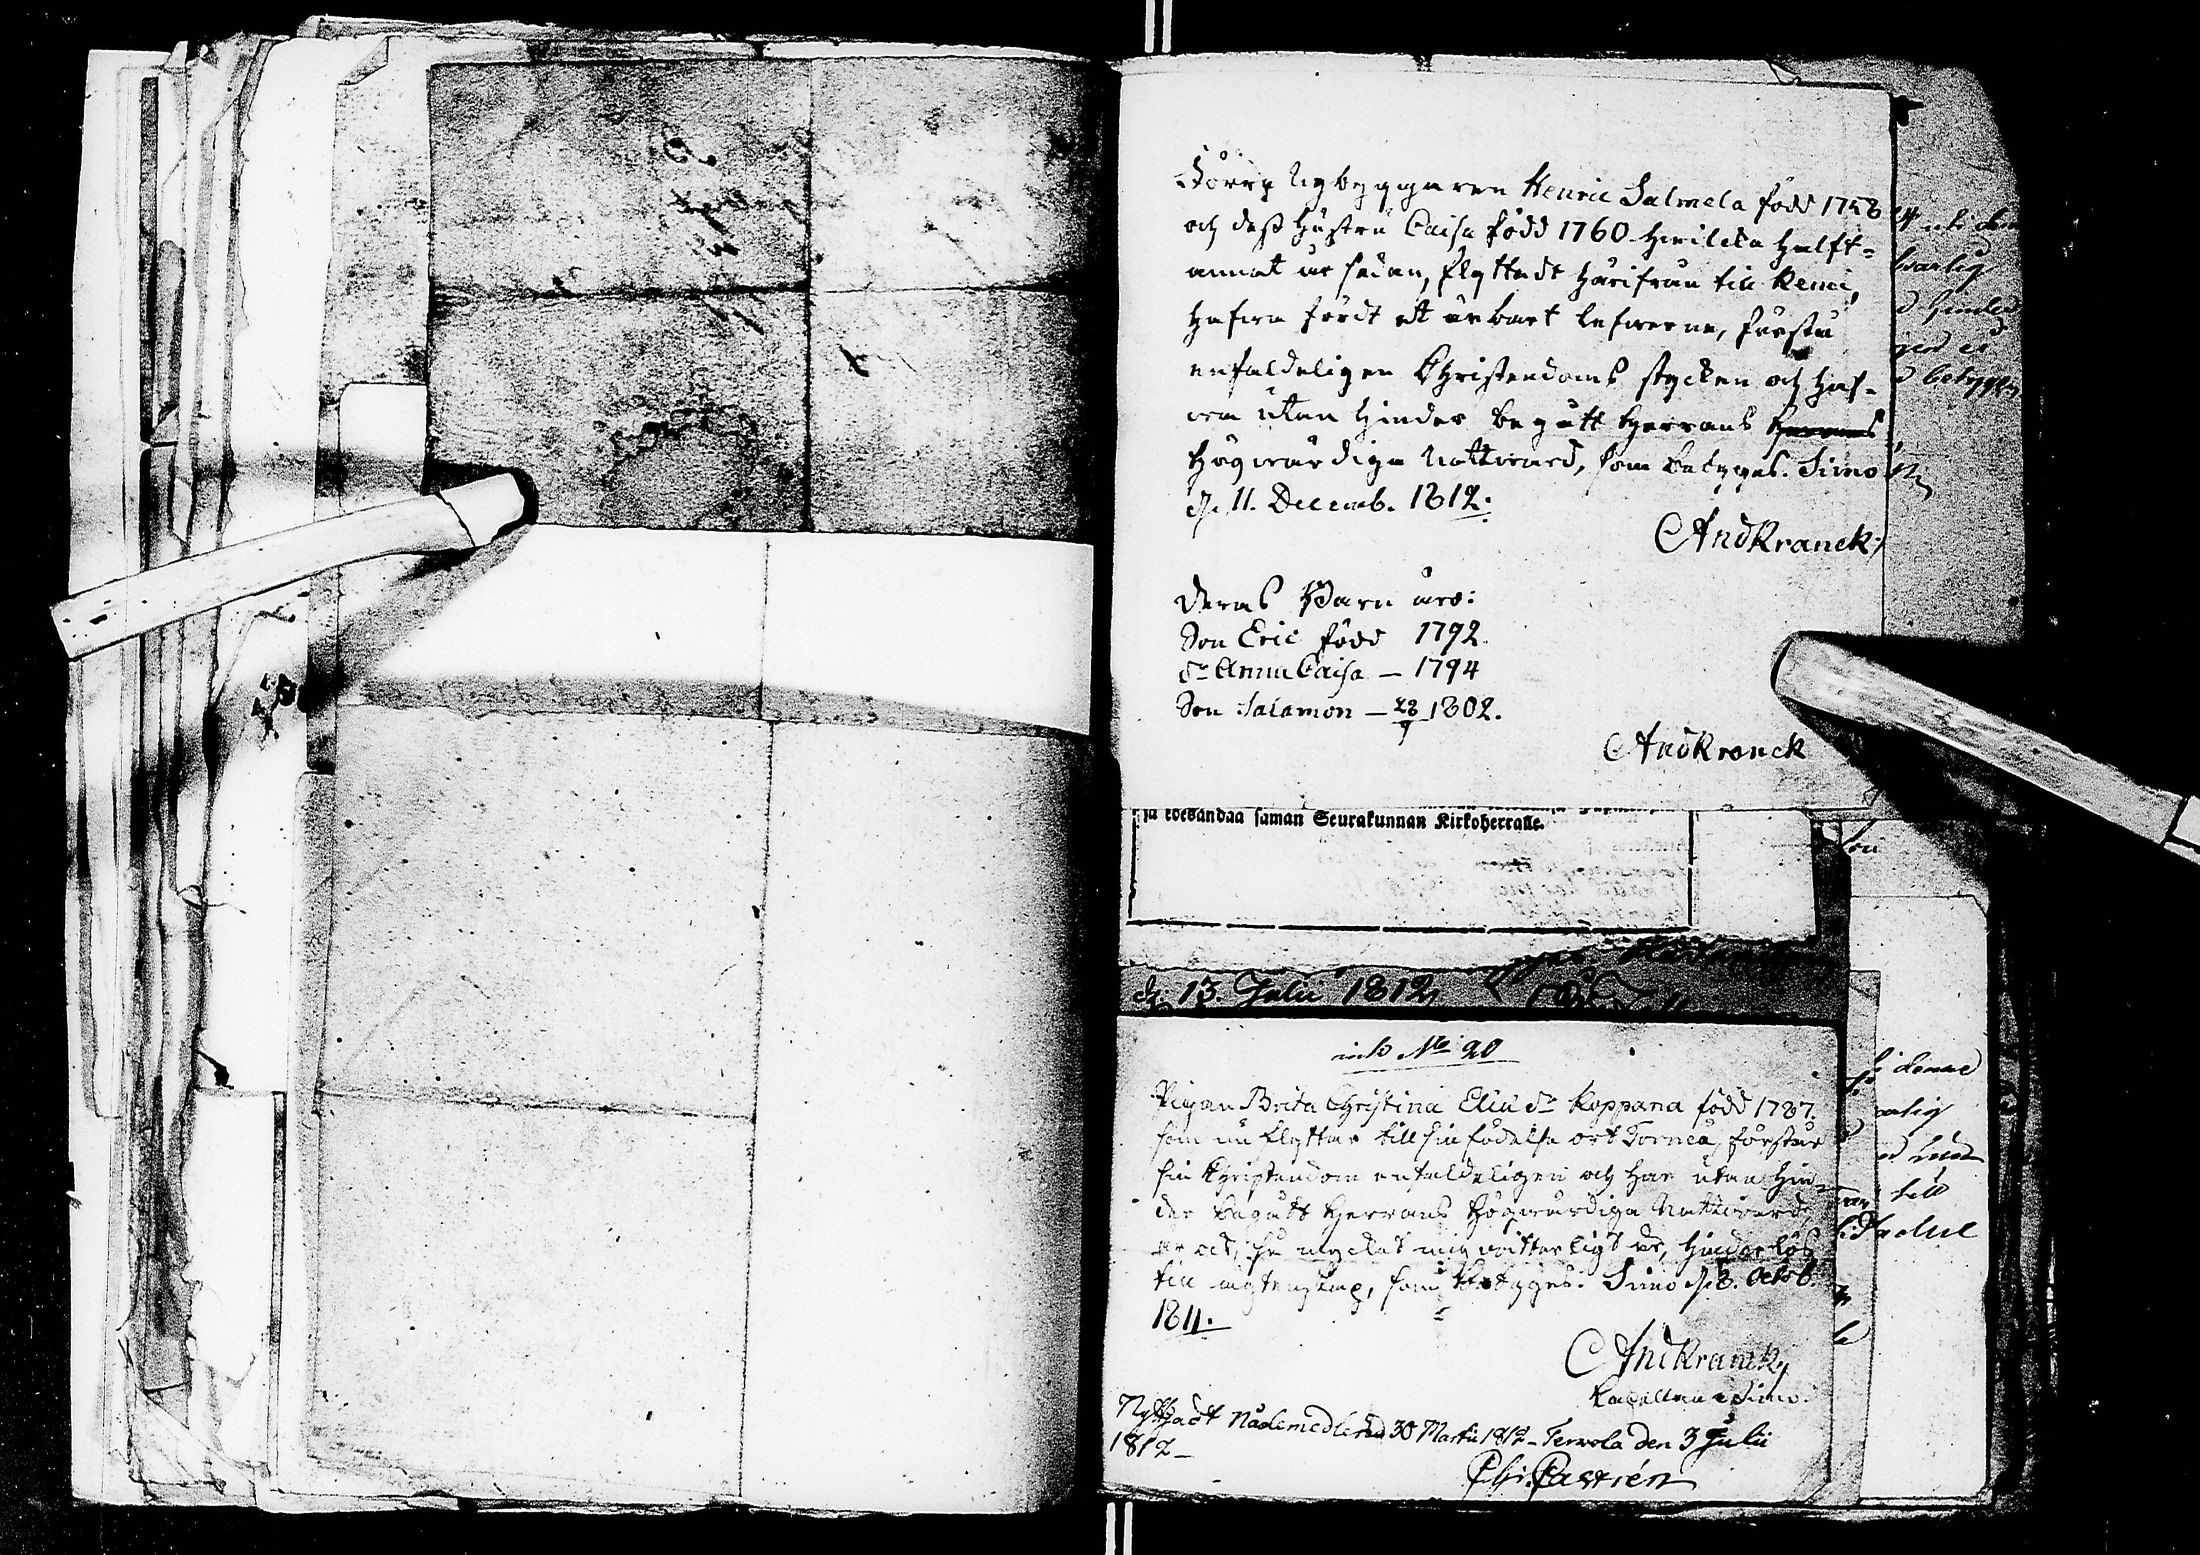 Förre Nybyggaren Henric Salmela född 1758
och dess Hustru Caisa född 1760 hwilcka half-
annat år sedan, flyttadt härifrån till Kemi,
hafwa fördt et ärbart lefwerne, förstå
enfaldeligen Christendoms stycken och haf-
wa utan hinder begått Herrans Herrans
Högwärdiga Nattward, som betyges. Simo
d. 11. Decemb. 1812.
AndKranck
Deras Barn äro:
Son Eric född 1792.
dr Anna Caisa — 1794
Son Salamon — 28/9 1802.
AndKranck
ja edesandaa saman Seurakunnan Kirkoherralle.
d. 13. Julii 1812
ink No 20
Pigan Brita Christina Elia dr Koppana född 1787.
som nu flyttar till sin födelse ort Torneå, förstår
sin Christendom enfaldeligen och har utan hin-
der begått Herrans Högwärdiga Nattward,
är ock, så mycket mig witterligt är, hinderlös
till ägtenskap, som betyges. Simo d. 8. Octob.
1811.
AndKranck
Capellan i Simo.
Nyttjadt Nådemedlen d 30 Martii 1812 - Tervola den 3 Julii
1812 -
Chr. Castrén